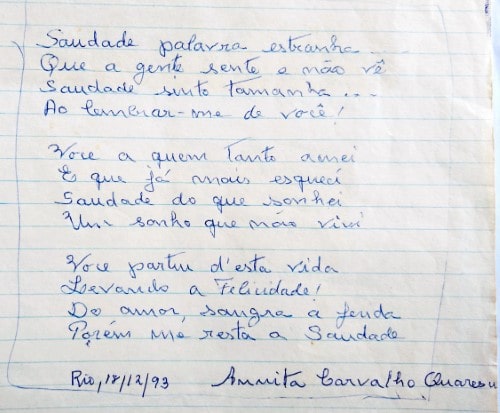 Saudade palavra estranha...
Que a gente sente e não vê
Saudade sinto tamanha...
Ao lembrar-me de você!
Voce a quem tanto amei
E que já mais esqueci
Saudade do que sonhei
Um sonho que não vivi
Voce partiu d'esta vida
Levando a Felicidade!
Do amor, sangra a fenda
Porém me resta a Saudade
Rio, 18/12/93 Annita Carvalho